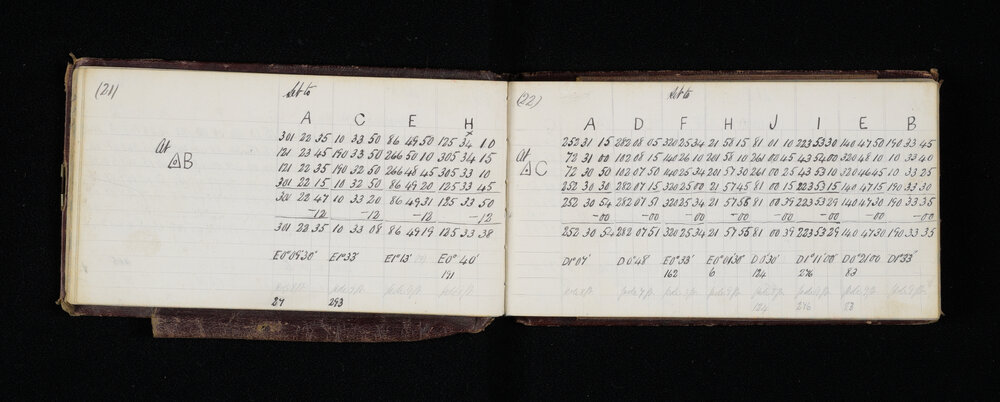 (21)
Set to
A C E H
At △B
301 22 35 10 33 50 86 49 50 125 34 10
121 23 45 190 33 50 266 50 10 305 34 15
121 22 35 190 32 50 266 48 45 305 33 10
301 22 15 10 32 50 86 49 20 125 33 45
301 22 47 10 33 20 86 49 31 125 33 50
-12 -12 -12 -12
301 22 35 10 33 08 86 49 19 125 33 38
E0° 09'30" E1°33' E1°13' E0° 40'
191
27 293
(22)
Set to
A D F H J I E B
At △C
252 31 15 282 08 05 320 25 34 21 58 15 81 01 10 223 53 30 140 47 50 190 33 45
72 31 00 102 08 15 140 26 10 201 58 10 261 00 45 43 54 00 320 48 10 10 33 40
72 30 50 102 07 50 140 25 34 201 57 30 261 00 25 43 53 10 320 46 45 10 33 25
252 30 30 282 07 15 320 25 00 21 57 45 81 00 15 223 53 15 140 47 15 190 33 30
252 30 54 282 07 51 320 25 34 21 57 55 81 00 39 223 53 29 140 47 30 190 33 35
-00 -00 -00 -00 -00 -00 -00 -00
252 30 54 282 07 51 320 25 34 21 57 55 81 00 39 223 53 29 140 47 30 190 33 35
D1°07' D0°48' E0°33' E0°01'30" D1°30' D1°11'00" D0°21'00 D1°33'
162 6 124 276 83
124 276 83